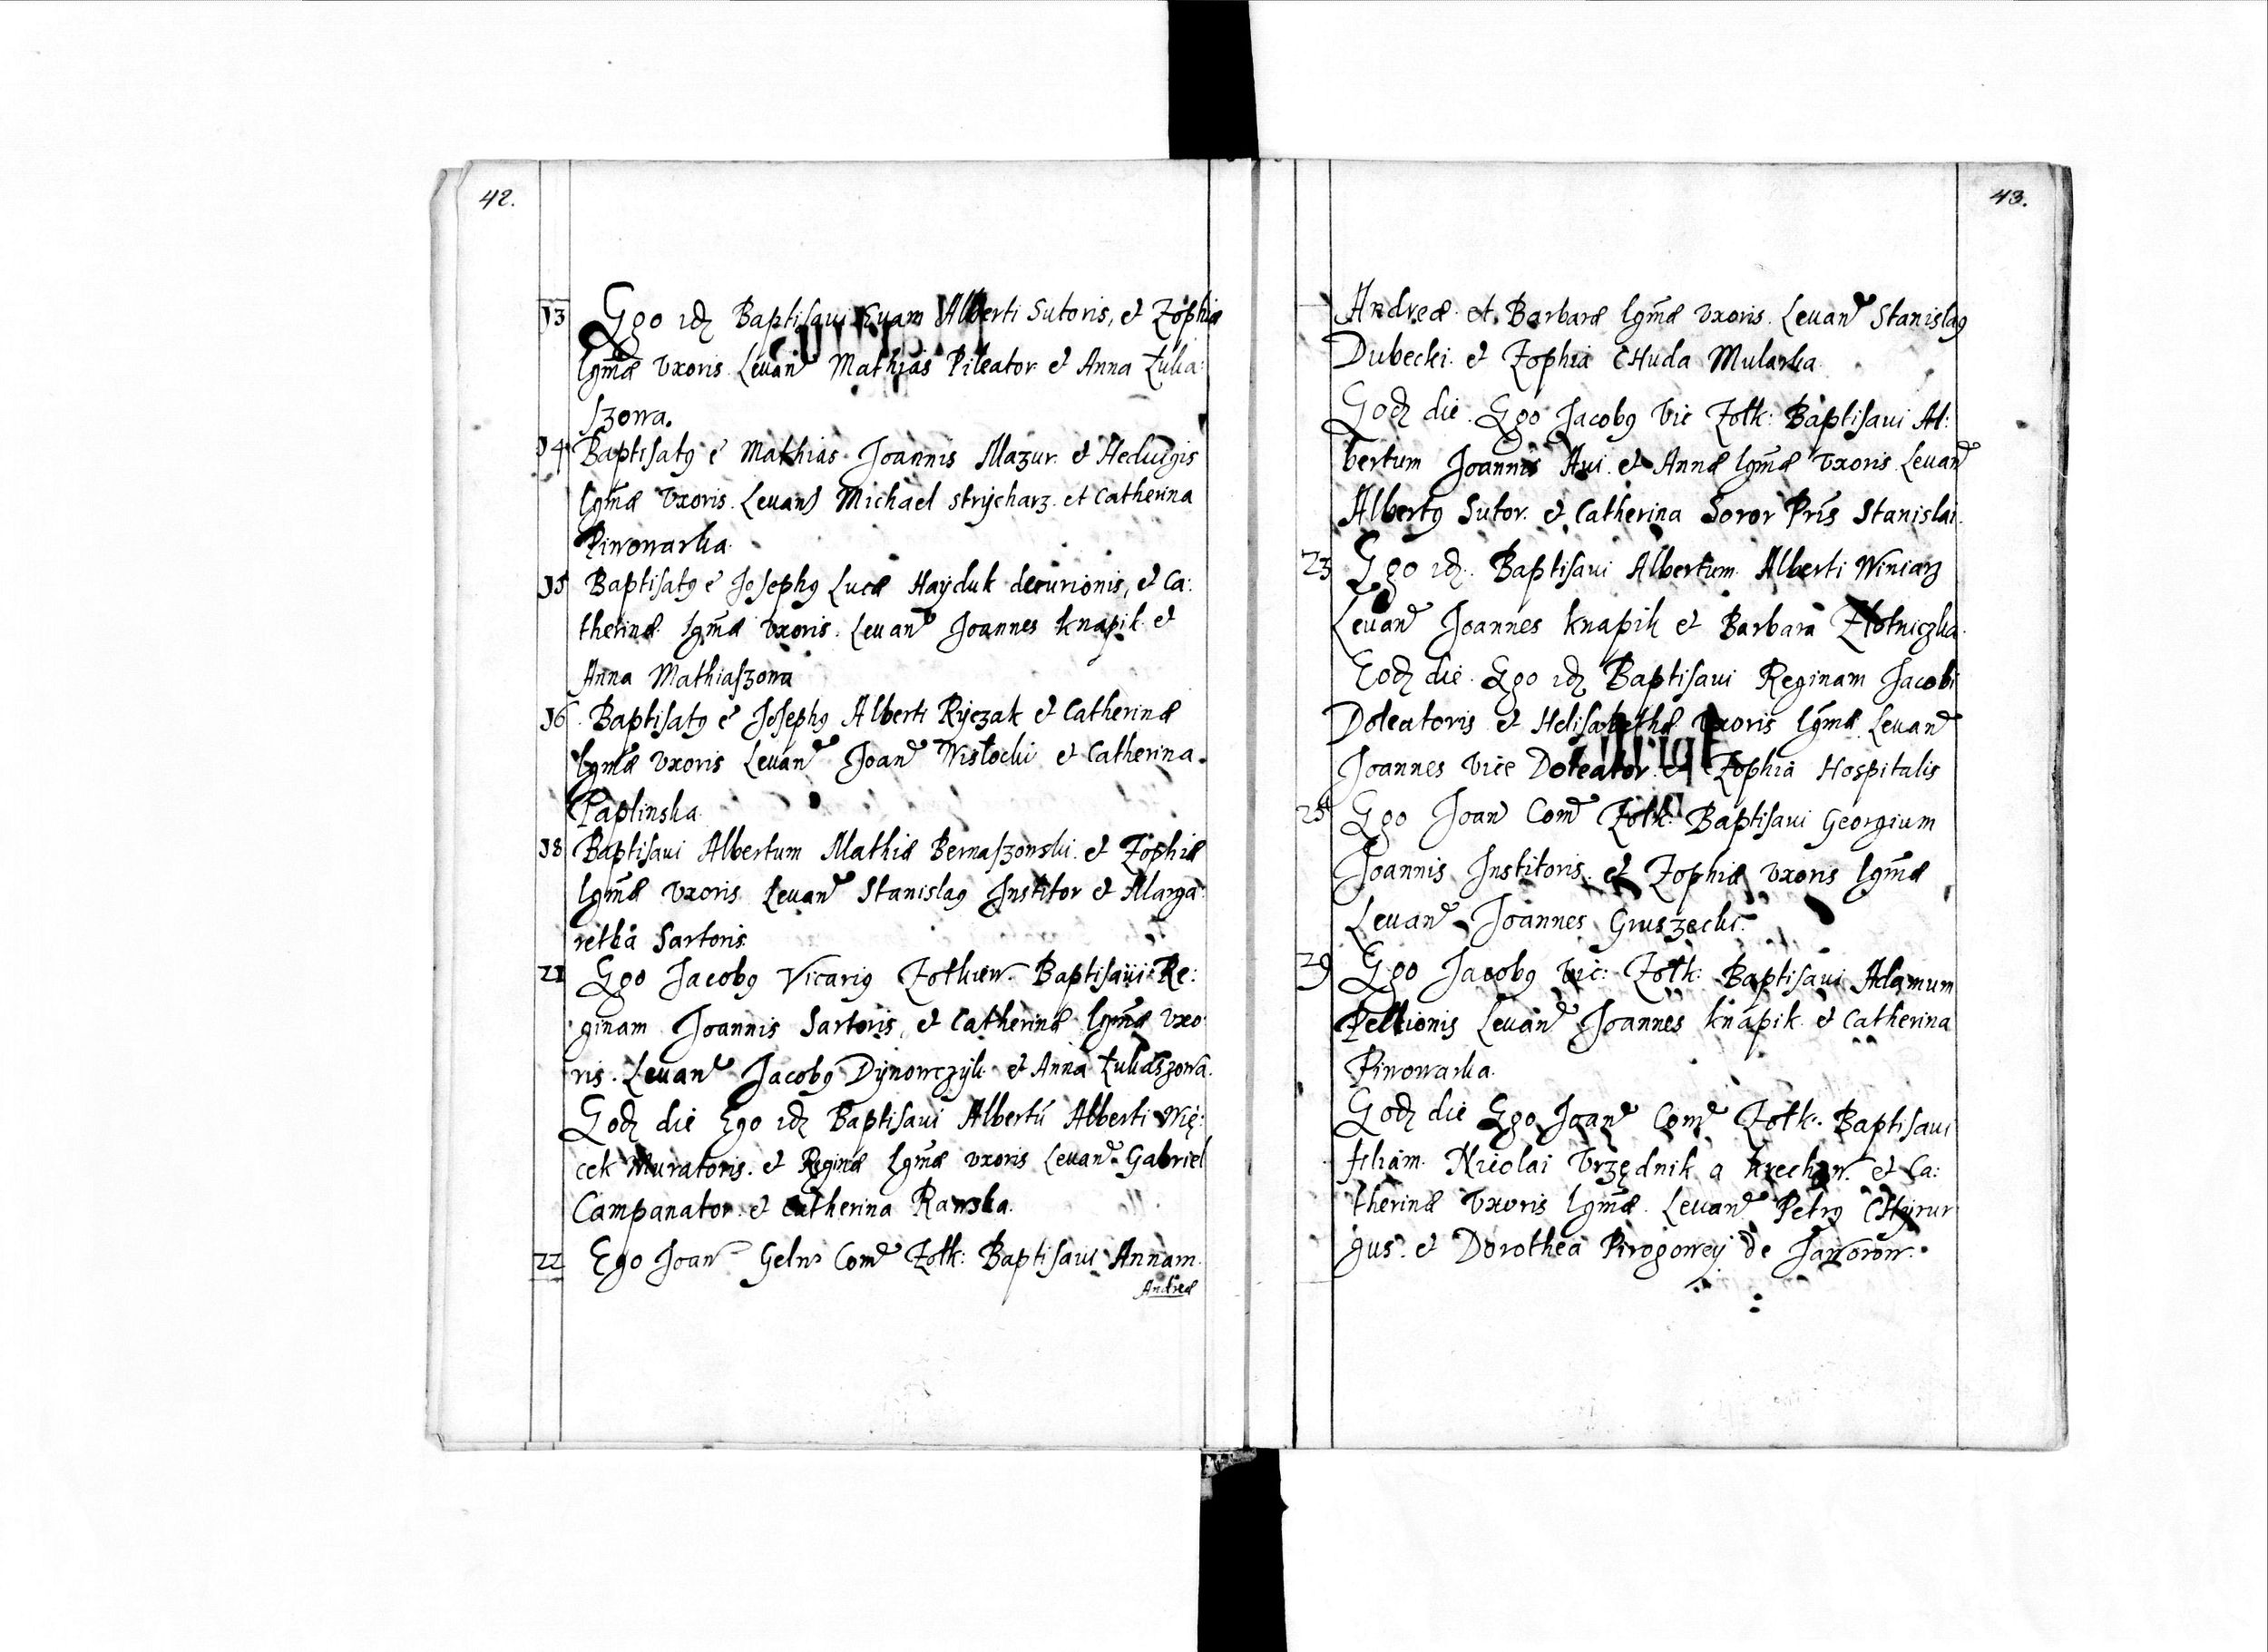 42.
13 Ego idẽ Baptisaui Euam Alberti Sutoris, et Zophiæ
lgm̃æ vxoris. Leuanᵉ Mathias Pileator et Anna Łuka:
szowa.
14 Baptisatꝰ ẽ Mathias Joannis Mazur. et Heduigis
lgm̃æ vxoris. Leuanᵉ Michael Strycharz. et Catherina
Piwowarka.
15 Baptisatꝰ ẽ Josephꝰ Lucæ Hayduk decurionis, et Ca:
therinæ lgm̃æ vxoris. Leuanᵉ Joannes Knapik et
Anna Mathiaszowa
16. Baptisatꝰ ẽ Josephꝰ Alberti Ryczak et Catherinæ
lgm̃æ vxoris Leuanᵉ Joanᵉ Wisłocki et Catherina.
Paplinska.
18 Baptisaui Albertum Mathiæ Bernaszowski. et Zophiæ
lgm̃æ vxoris Leuanᵉ Stanislaꝰ Institor et Marga:
retha Sartoris.
21 Ego Jacobꝰ Vicariꝰ Zolkiew. Baptisaui Re:
ginam Joannis Sartoris, et Catherinæ lgm̃æ vxo
ris. Leuanᵉ Jacobꝰ Dynowczyk et Anna Łukaszowa.
Eodẽ die Ego idẽ Baptisaui Albertũ Alberti Wię:
cek Muratoris. et Reginæ lgm̃æ vxoris Leuanᵉ. Gabriel
Campanator. et Catherina Rawska.
22 Ego Joanᵉ Comᵉ Zolk: Baptisaui Annam.
Andreæ
43.
Andreæ. et. Barbaræ lgm̃æ vxoris. Leuanᵉ Stanislaꝰ
Dubecki. et Zophia CHuda Mularka.
Eodẽ die. Ego Jacobꝰ Vic Zolk: Baptisaui Al:
bertum Joannis Aui. et Annæ lgm̃æ vxoris Leuanᵉ
Albertꝰ Sutor. et Catherina Soror Pris Stanislai.
23 Ego idẽ. Baptisaui Albertum. Alberti Winiarz
Leuanᵉ Joannes Knapik et Barbara Złotniczka.
Eodẽ die. Ego idẽ Baptisaui Reginam Jacobi
Doleatoris et Helisabethæ vxoris lgm̃æ Leuanᵉ
Joannes Vice Doleator. et Zophia Hospitalis
25 Ego Joanᵉ Comᵉ Zolk: Baptisaui Georgium
Joannis Institoris. et Zophiæ vxoris lgm̃æ
Leuanᵉ Joannes Gruszecki.
29 Ego Jacobꝰ Vic: Zolk: Baptisaui Adamum
Pellionis Leuanᵉ Joannes Knapik. et Catherina
Piwowarka.
Eodẽ die Ego Joanᵉ Comᵉ Zolk. Baptisaui
filiam. Nicolai Vrzędnik a Krechow. et Ca:
therinæ vxoris lgm̃æ. Leuanᵉ Petrꝰ CHyrur
gus. et Dorothea Pirogowey de Jaworow.